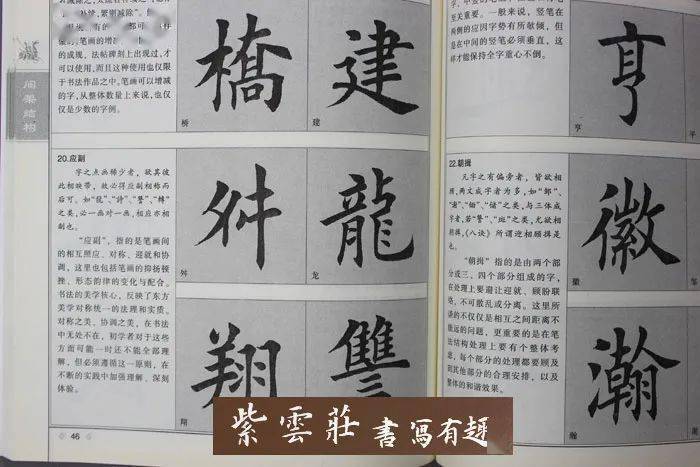 间架结构
可以使用，而且这种使用也仅限
于书法作品之中，笔画可以增减
的字，从整体数量上来说，也仅
仅是少数的字例。
橋
桥
建
建
20.应副
字之点画稀少者，欲其彼
此相映带，故必得应副相称而
后可。如“龍”、“詩”、“讐”、“轉”
之类，必一画对一画，相应亦相
副也。
“应副”，指的是笔画间
的相互照应、对称、迎就和协
调，这里也包括笔画的抑扬顿
挫、形态韵律的变化与配合。
书法的美学核心，反映了东方
美学对称统一的法理和实质。
对称之美、协调之美，在书法
中无处不在，初学者对于这些
方面可能一时还不能全部理
解，但必须遵循这一原则，在
不断的实践中加强理解、深刻
体验。
舛
舛
龍
龙
翔
翔
讐
46
至关重要。一般来说，竖笔在
两侧的应因字势有所欹倾，但
是在中间的竖笔必须垂直，这
样才能保持全字重心不倒。
亨
亨
22.朝揖
凡字之有偏旁者，皆欲相
顾，两文成字者为多，如“鄒”、
之类，与三体成
字者，若“讐”、“斑”之类，尤欲相
朝揖，《八诀》所谓迎相顾揖是
也。
“朝揖”指的是由两个部
分或三、四个部分组成的字，
在处理上要避让迎就、顾盼联
络，不可散乱或分离。这里所
讲的不仅仅是相互之间距离不
能远的问题，更重要的是在笔
法结构处理上要有个整体考
虑，每个部分的处理都要顾及
到其他部分的合理安排，以及
整体的和谐效果。
徽
徽
邹
瀚
瀚
紫雲莊書寫有趣